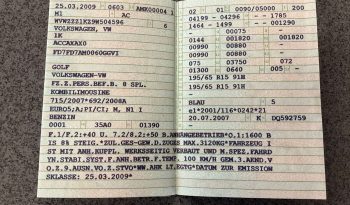 25.03.2009 0603 AMK00004 1
M1 AC
WVWZZZ1KZ9W504596
VOLKSWAGEN, VW
1K
ACCAXAX0
FD7FD7AM0060GGVI
GOLF
VOLKSWAGEN-VW
FZ.Z.PERS.BEF.B. 8 SPL.
KOMBILIMOUSINE
715/2007*692/2008A
EURO5;A;PI/CI; M, N1 I
BENZIN
0001 35A0 01390 -
02 01 0090/05000 200
04199 - 04296 - - 1785
1464 - 01299 - 01364 -
- 00075 -
0144 001820 001820
00990 00880 - -
00990 00880 - -
075 01300 0735 -
01300 0640 005 -
195/65 R15 91H
195/65 R15 91H
-
BLAU 5
e1*2001/116*0242*21
20.07.2007 K DQ592759
-
F.1/F.2:+40 U. 7.2/8.2:+50 B.ANHÄNGEBETRIEB*O.1:1600 B
IS 8% STEIG.*ZUL.GES-GEW.D.ZUGES MAX.3120KG*FAHRZEUG I
ST MIT ANH.KUPPL. WERKSSEITIG VERBAUT UND M.SPEZ.FAHRD
YN.STABI.SYST.F.ANH.BETR.F.TEMP. 100 KM/H GEM.3.AEND.V
O.Z.9.AUSN.VO.Z.STVO*WW.AHK LT.EGTG*DATUM ZUR EMISSION
SKLASSE: 25.03.2009*